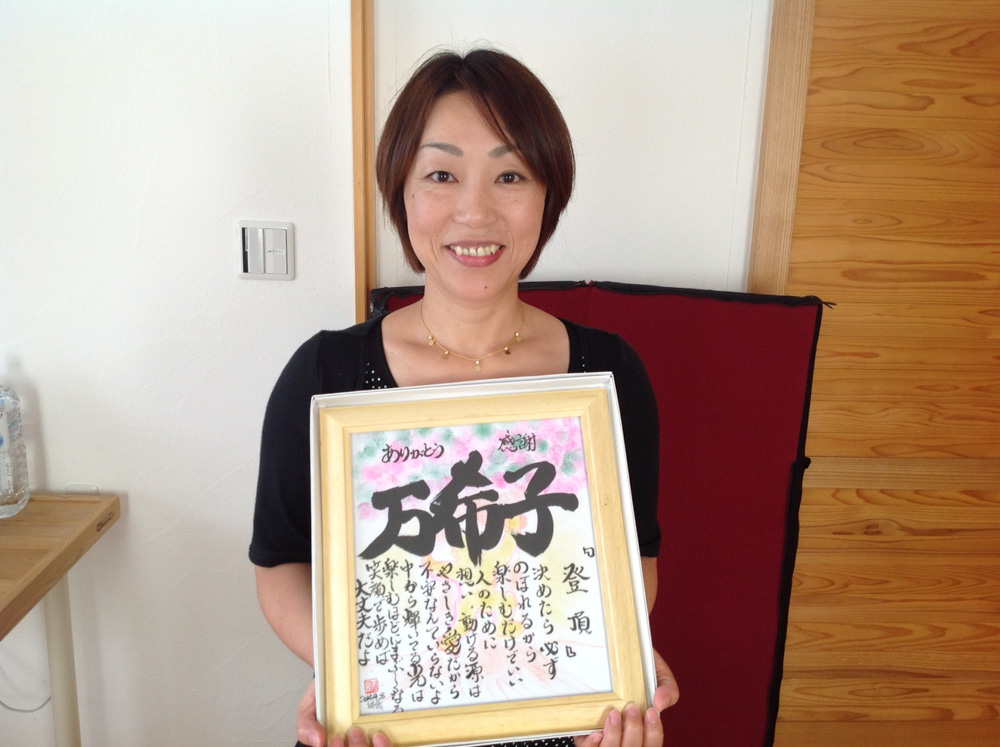 ありがとう 感謝
万希子
「登頂」
決めたら必ず
のぼれるから
楽しむだけでいい
人のために
想い、動ける源は
やさしき愛だから
不安なんていらないよ
中から輝いてる光は
楽しむほどにまぶしくなる
笑顔で歩めば
大丈夫だよ